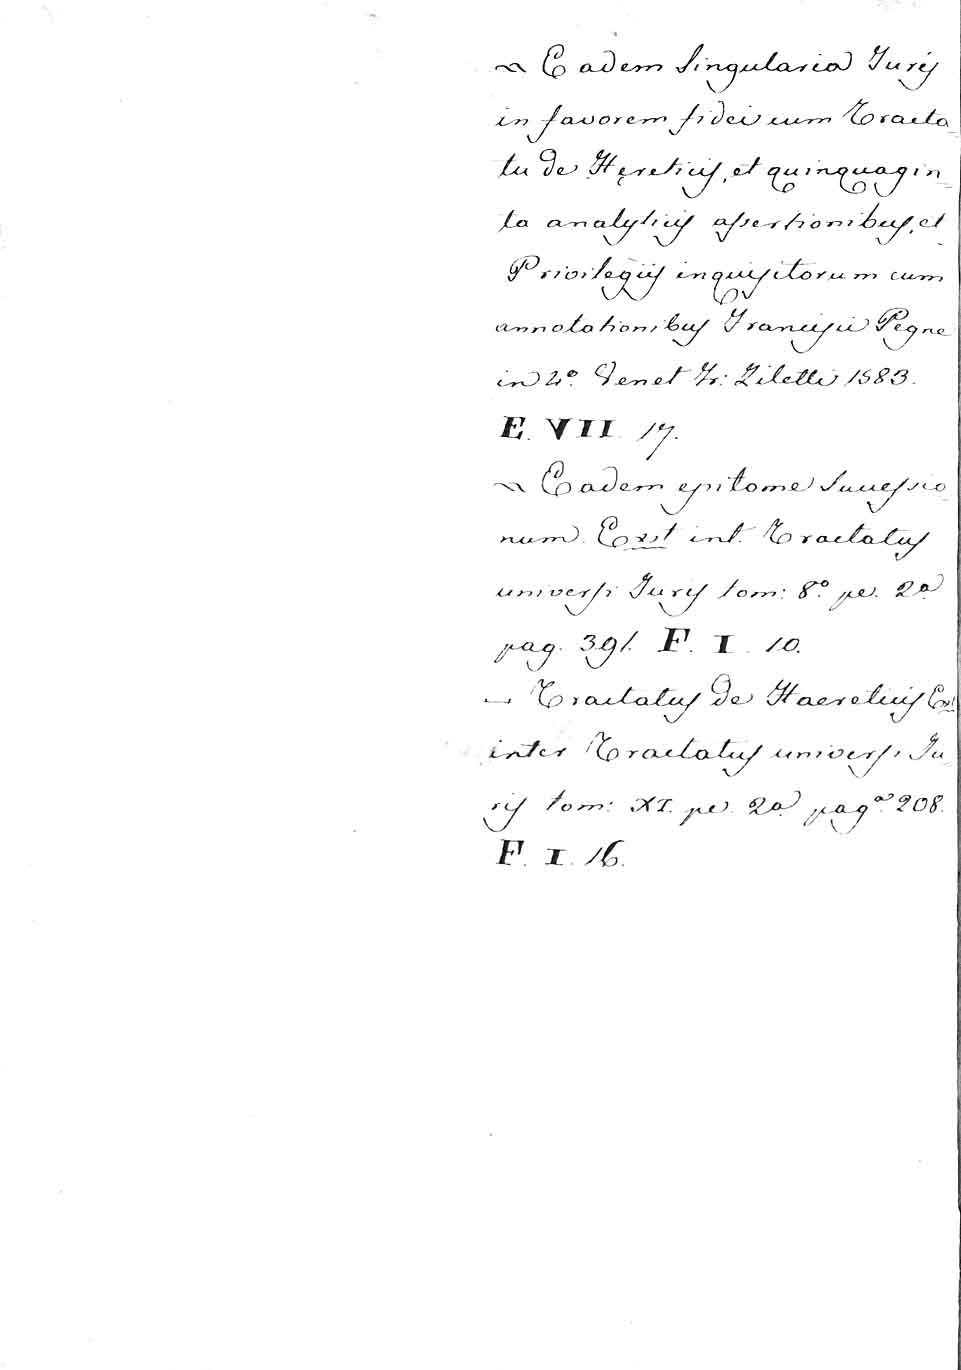 ~ Eadem Singularia Juris
in favorem fidei cum Tracta
tu de Hęreticis, et quinquagin
ta analyticis assertionibus, et
Privilegiis inquisitorum cum
annotationibus Francisci Pegne
in 4º. Venet Fr: Ziletti 1583.
E. VII 17.
~ Eadem epitome Successio
num. Exst int. Tractatus
universi Juris tom: 8º. pe. 2a
pag. 391. F. I. 10.
— Tractatus de Haereticis Ext
inter Tractatus universi Ju
ris tom: XI. pe. 2a pagª. 208.
F. I. 16.